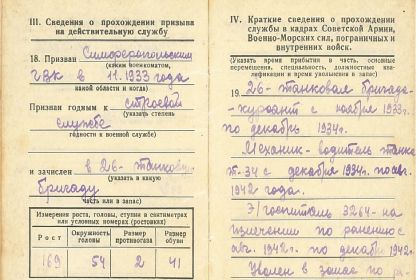 III. Сведения о прохождении призыва
на действительную службу
18. Призван Симферопольским
(каким военкоматом,
ГВК в 11.1933 года
какой области и когда)
Призван годным к строевой
(указать степень
службе
годности к военной службе)
и зачислен в 26-танковую
(указать в какую
бригаду
часть или в запас)
Измерения роста, головы, ступни в сантиметрах
или условных номерах (ростовках)
Рост
Окружность головы
Размер противогаза
Размер обуви
169
54
2
41
IV. Краткие сведения о прохождении
службы в кадрах Советской Армии,
Военно-Морских сил, пограничных и
внутренних войск.
(Указать время прибытия в часть, основные
перемещения, специальность, должностные ква-
лификации и время увольнения в запас)
19. 26-танковая бригада-
курсант с ноября 1933г.
по декабрь 1934г.
Механик-водитель танка
Т-34 с декабря 1934г. по авг.
1942 года.
Э/госпиталь 3264-на
излечении по ранению с
авг. 1942г. по декабрь 1942г.
Уволен в запас по